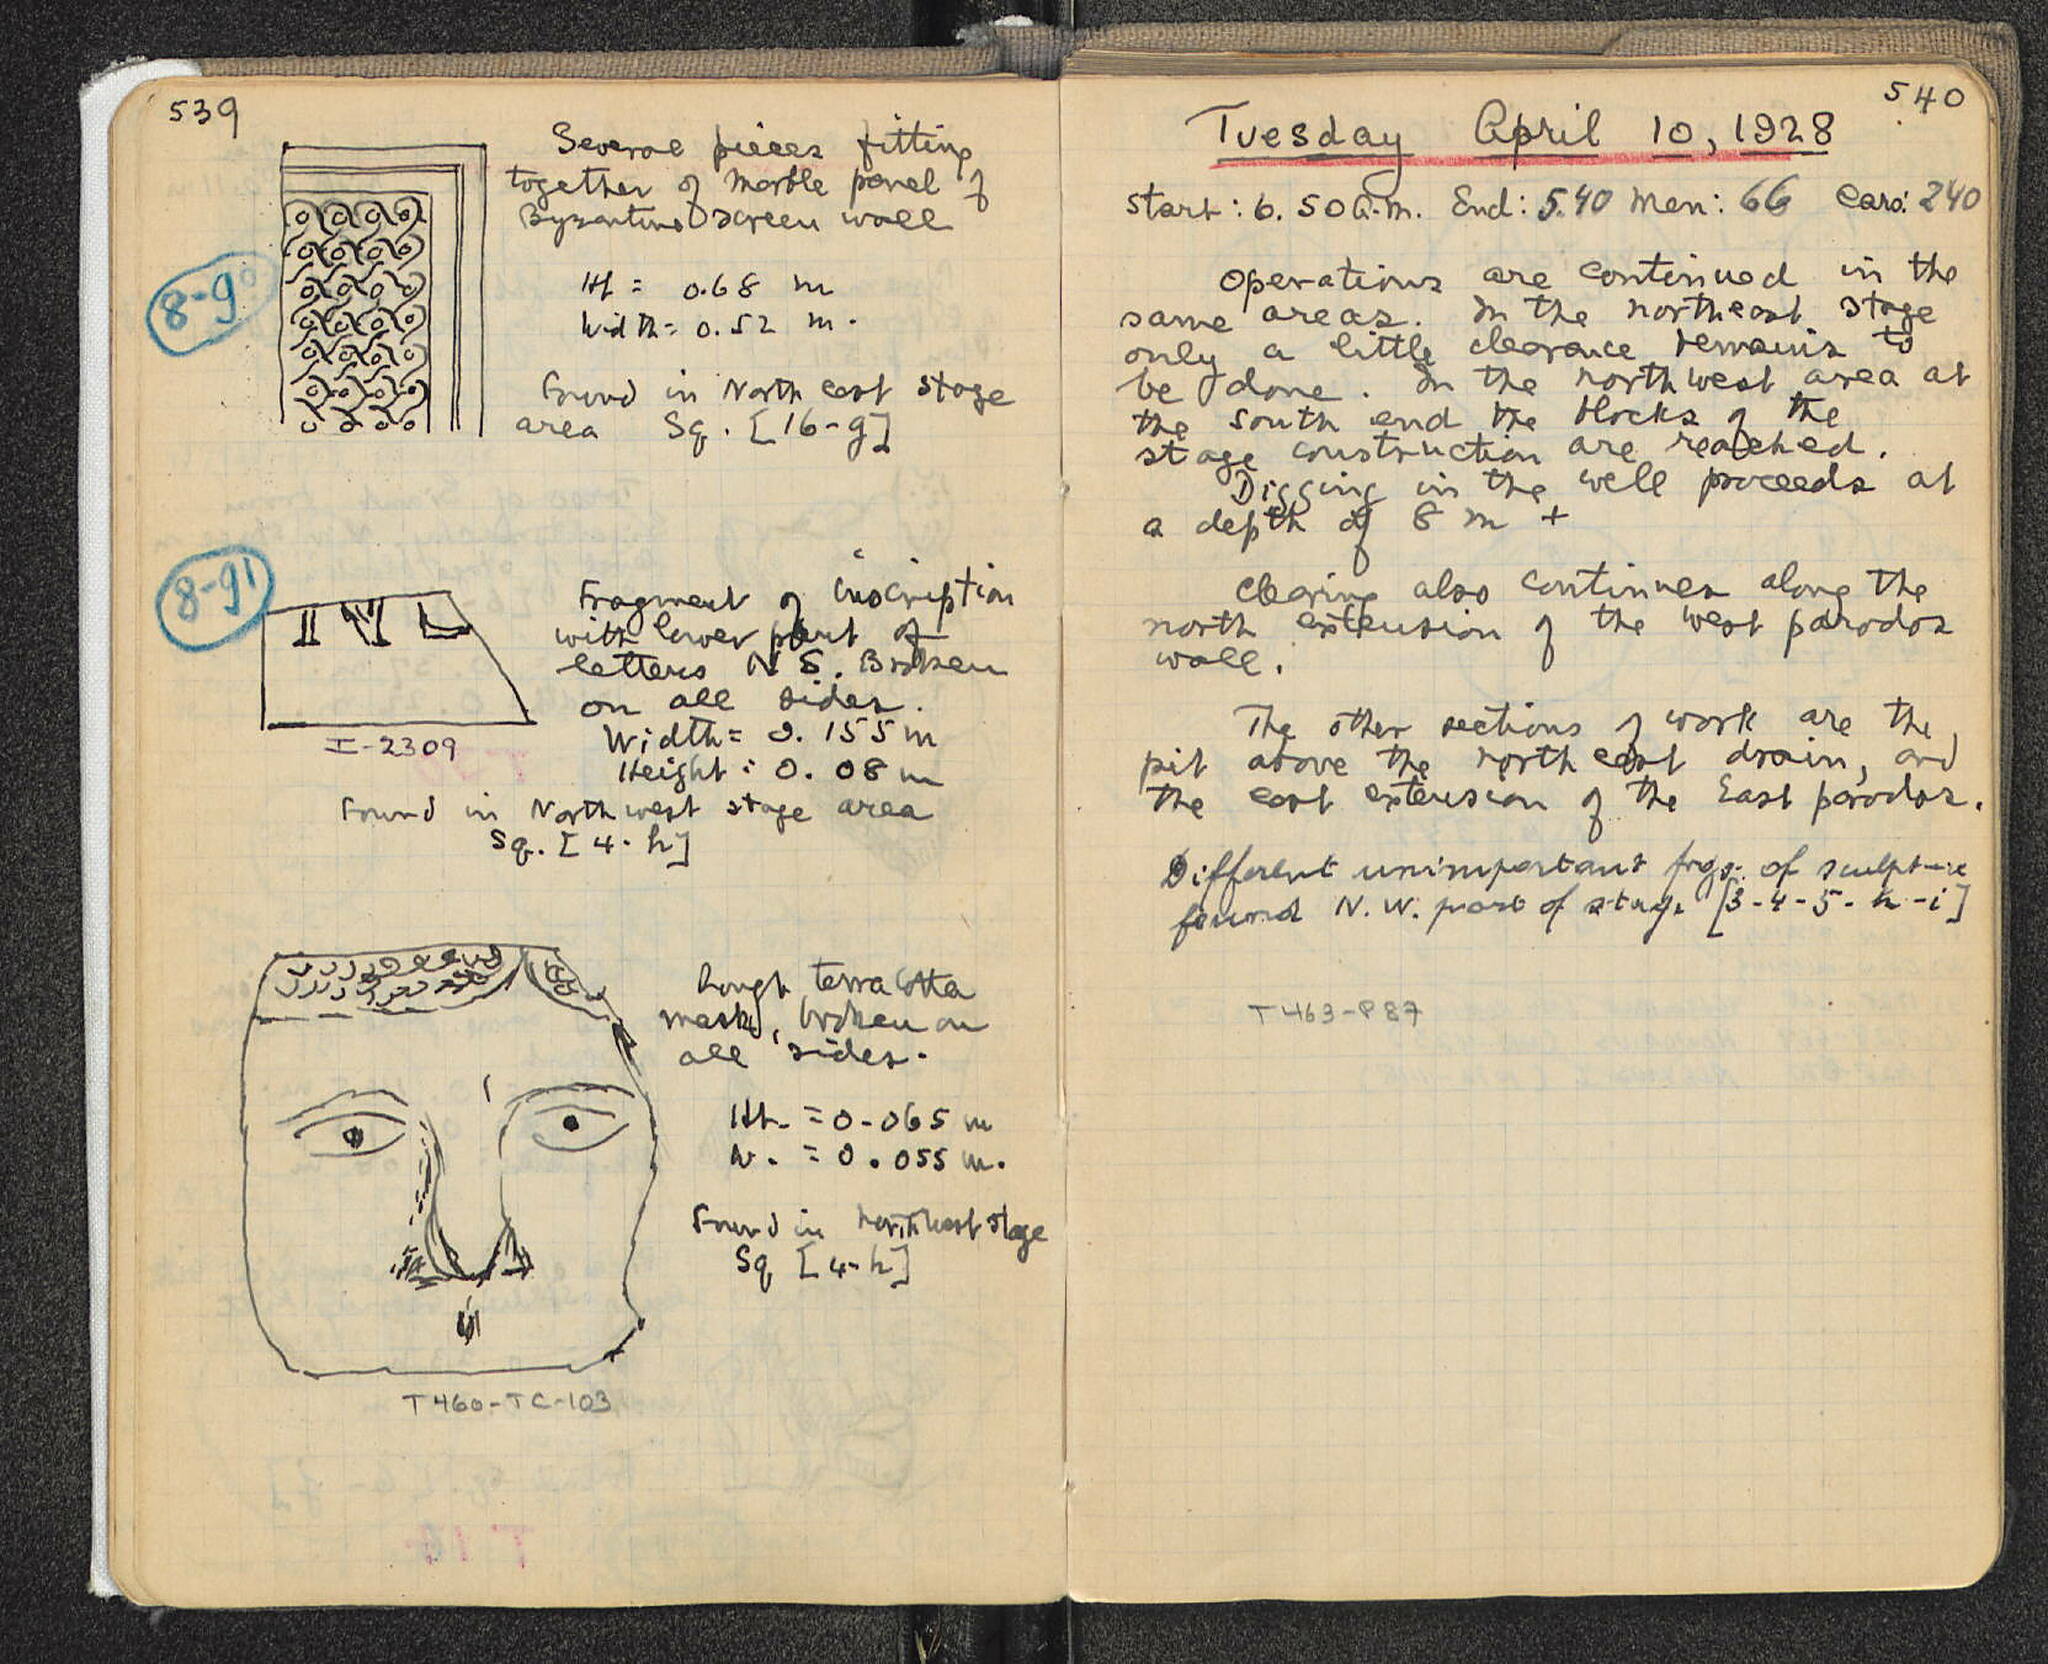 539
Several pieces fitting
together of marble panel of
Byzantine screen wall
8-90
Ht = 0.68 m
Width = 0.52 m.
Found in North east stage
area Sq. [16-g]
8-91
Fragment of inscription
with lower part of
letters N S. Broken
on all sides.
Width = 0.155 m
Height: 0.08 m
I-2309
Found in North west stage area
Sq. [4-h]
Rough terra cotta
mask, broken on
all sides.
Ht. = 0.065 m
W. = 0.055 m.
Found in northwest stage
Sq [4-h]
T460-TC-103
540
Tuesday April 10, 1928
Start: 6.50 a.m. End: 5.40 Men: 66 Cars: 240
Operations are continued in the
same areas. In the northeast stage
only a little clearance remains to
be done. In the northwest area at
the south end the blocks of the
stage construction are reached.
Digging in the well proceeds at
a depth of 8 m +
Clearing also continues along the
north extension of the west parodos
wall.
The other sections of work are the
pit above the north east drain, and
the east extension of the East parodos.
Different unimportant frgs. of sculpture
found N.W. part of stage [3-4-5-h-i]
T463-P87